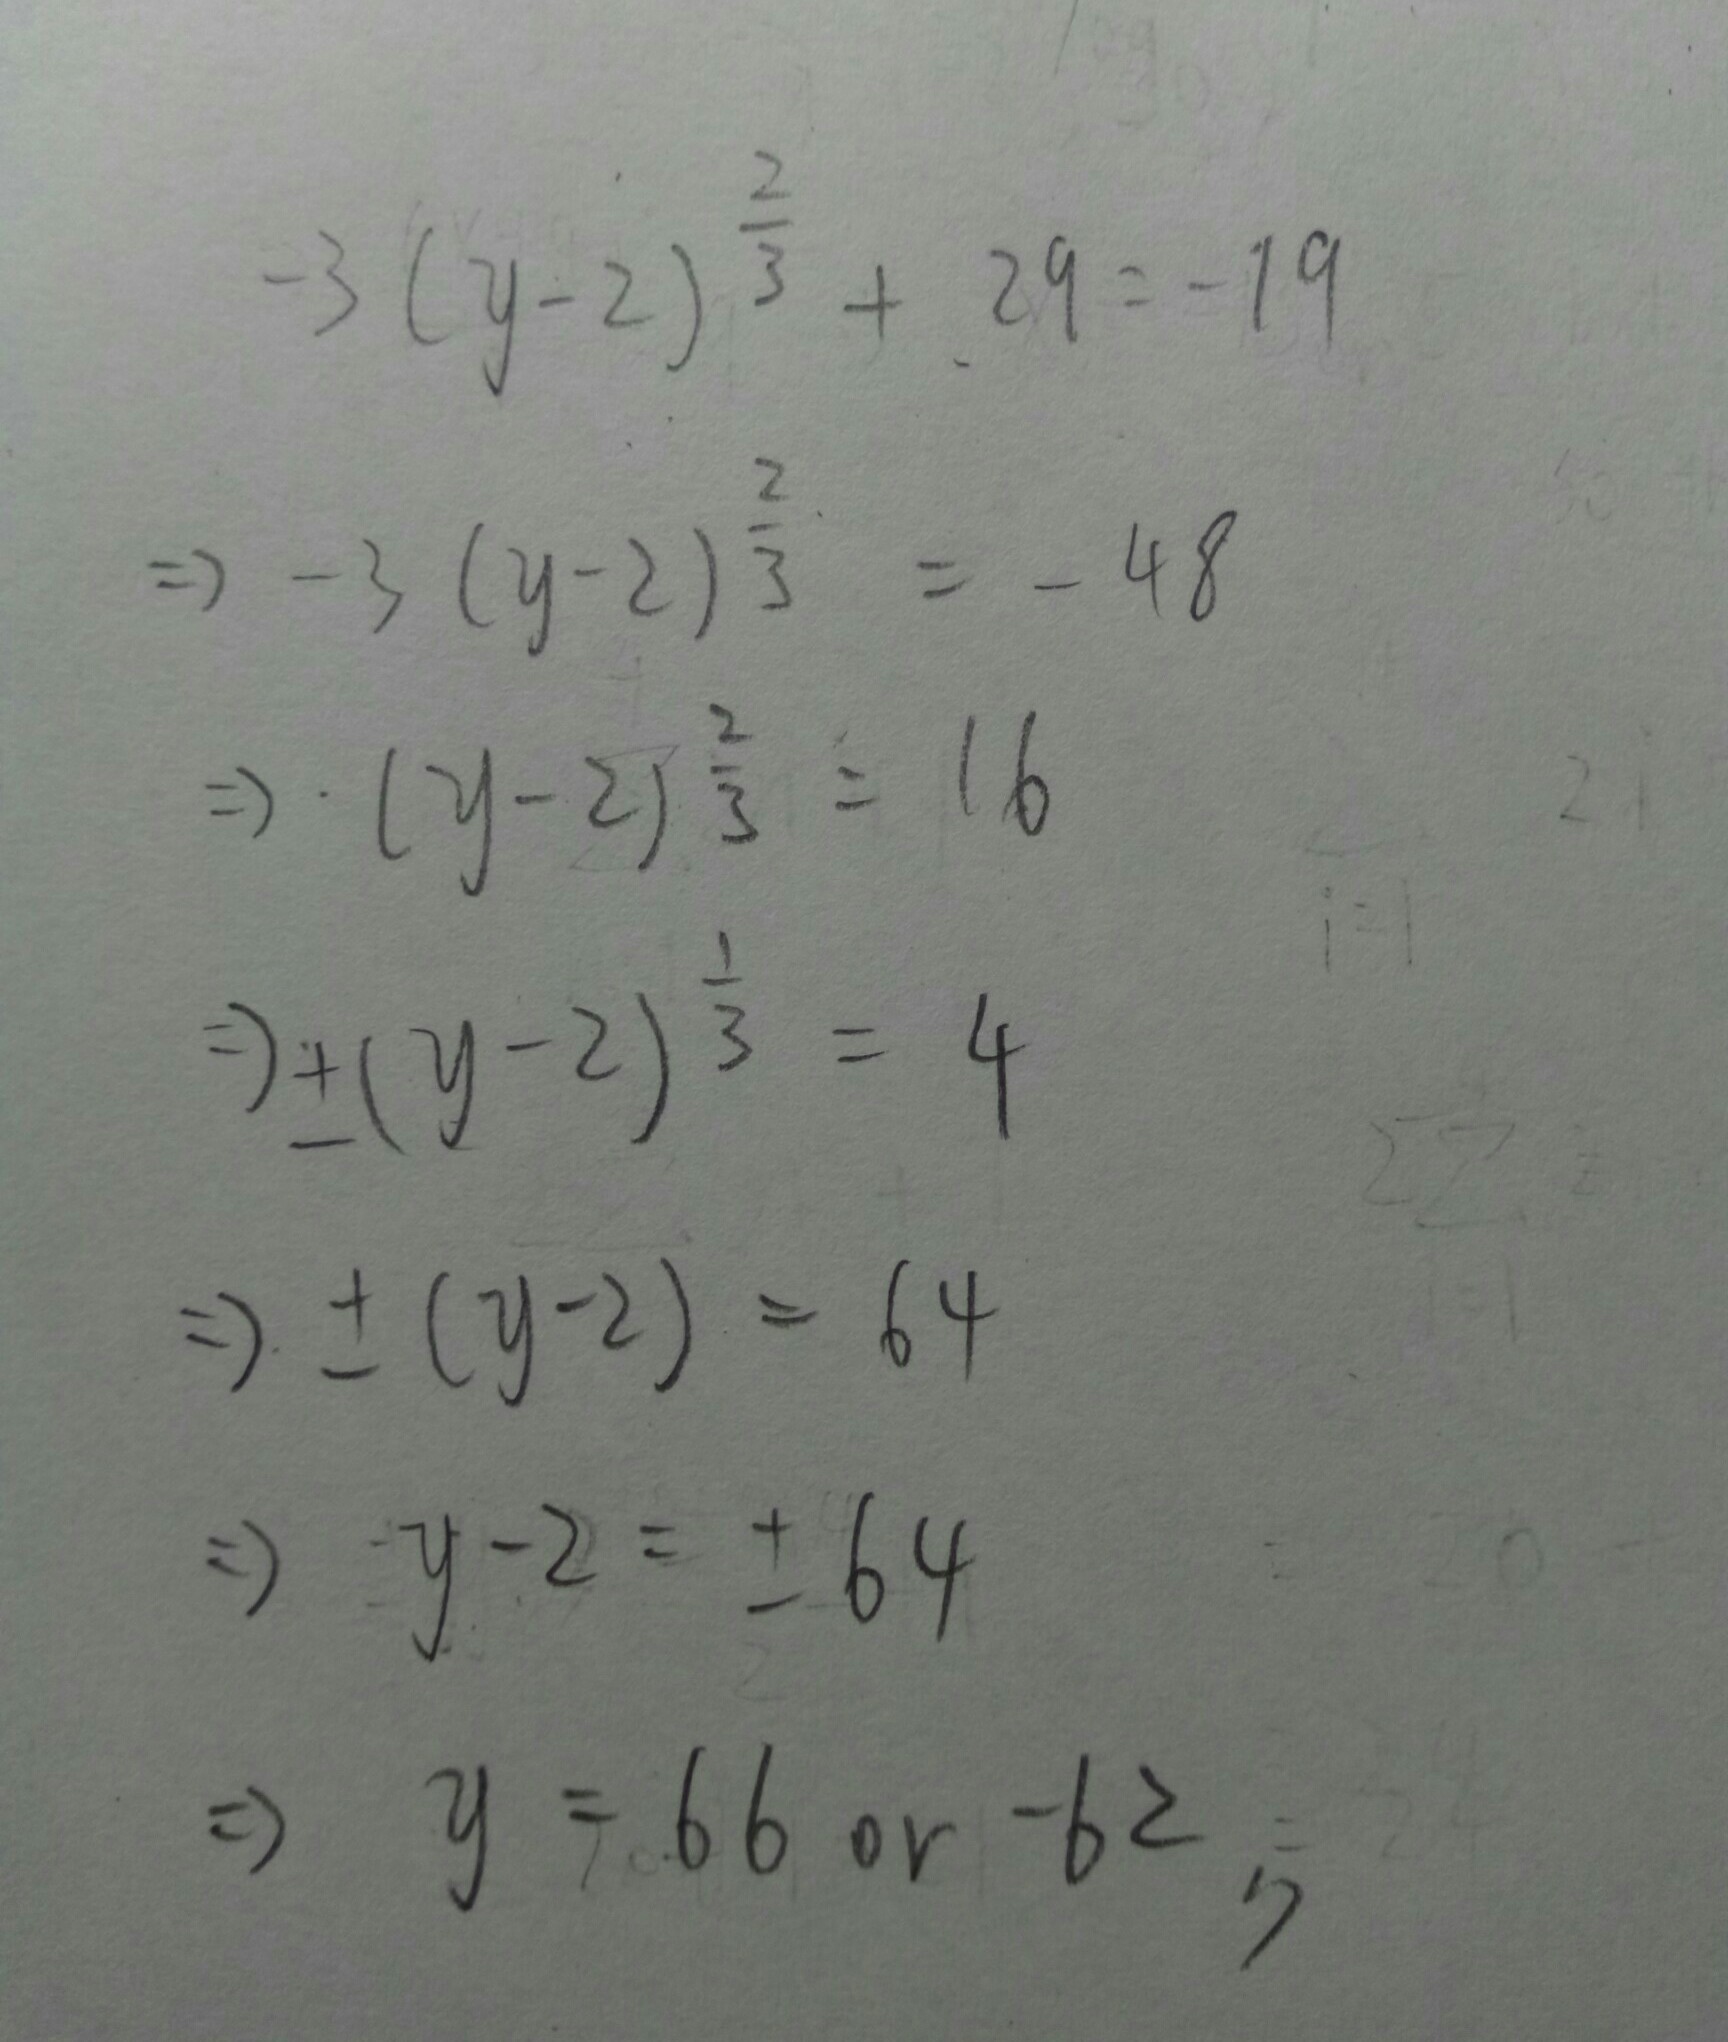 -3(y-2)^{2/3} + 29 = -19
=> -3(y-2)^{2/3} = -48
=> (y-2)^{2/3} = 16
=> ±(y-2)^{1/3} = 4
=> ±(y-2) = 64
=> y-2 = ±64
=> y = 66 or -62